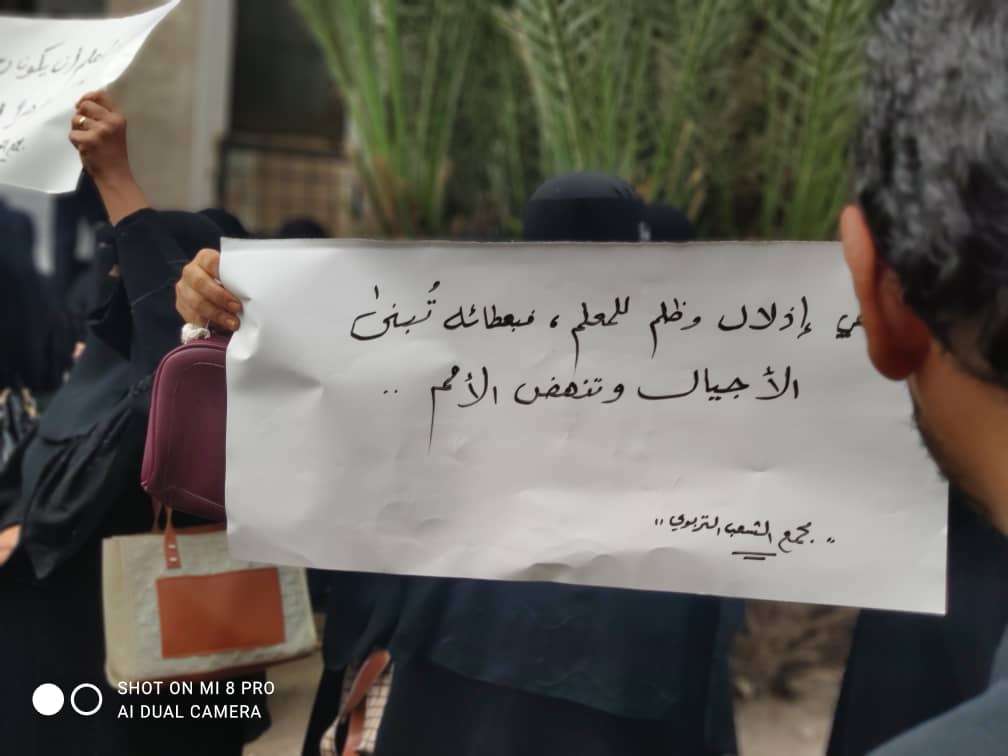 إذلال وظلم للمعلم، فبعطائه تُبنى
الأجيال وتنهض الأمم ..
" مجمع الشعب التربوي "
أن يكون
SHOT ON MI 8 PRO
AI DUAL CAMERA